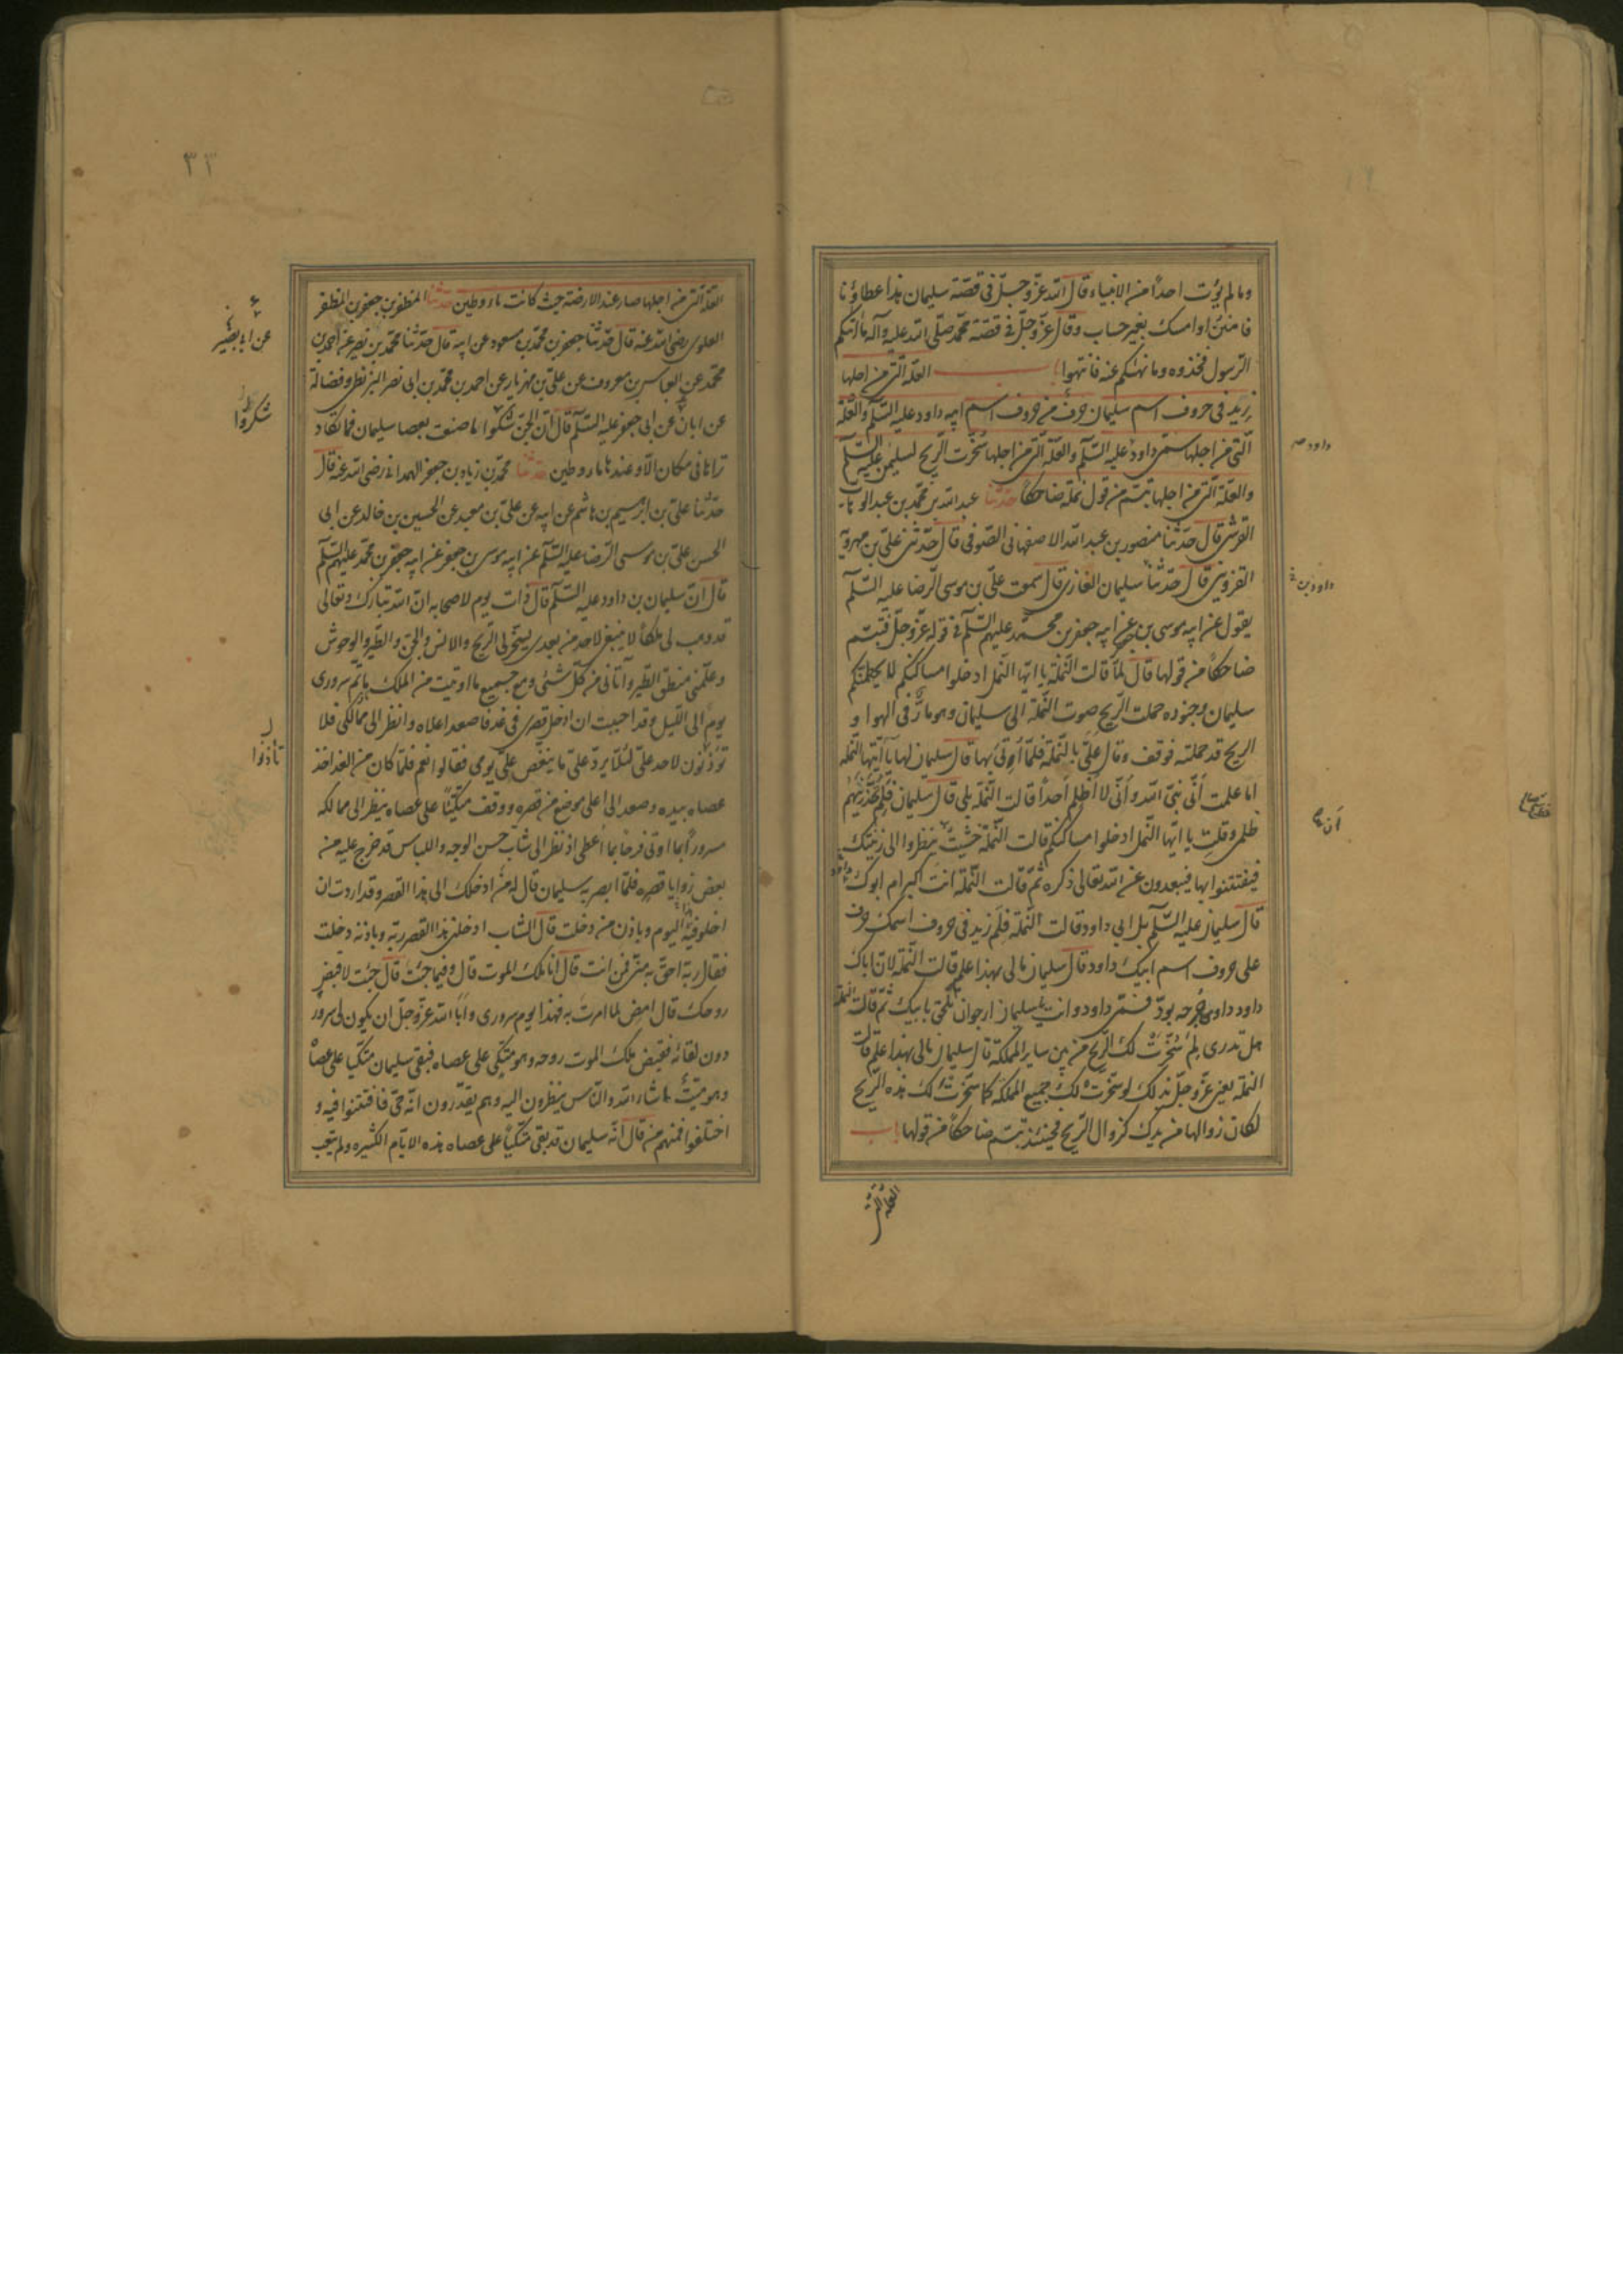 وما لم يؤت احداً من الانبياء قال الله عزّ وجلّ فى قصّة سليمان هذا عطاؤنا
فامنن او امسك بغير حساب وقال عزّ وجلّ فى قصّة محمّد صلّى الله عليه وآله ما اتيكم
الرسول فخذوه وما نهيكم عنه فانتهوا باب العلّة التى من اجلها
زيد فى حروف اسم سليمان حرف من حروف اسم ابيه داود عليه السّلم والعلّة
الّتى من اجلها سمّى داود عليه السّلم والعلّة الّتى من اجلها سخّرت الرّيح لسليمن عليه السّلم
والعلّة الّتى من اجلها تبسّم من قول نملة ضاحكاً حدّثنا عبد الله بن محمّد بن عبد الوهاب
القرشى قال حدّثنا منصور بن عبد الله الاصفهانى الصّوفى قال حدّثنى علىّ بن مهرويه
القزوينى قال حدّثنا سليمان الغازى قال سمعت علىّ بن موسى الرّضا عليه السّلم
يقول عن ابيه موسى بن جعفر عن ابيه جعفر بن محمّد عليهم السّلم فى قوله عزّ وجلّ فتبسّم
ضاحكاً من قولها قال لمّا قالت النّملة يا ايّها النّمل ادخلوا مساكنكم لا يحطمنّكم
سليمان وجنوده حملت الرّيح صوت النّملة الى سليمان وهو مارّ فى الهوا و
الريح قد حملته فوقف وقال علىّ بالنّملة فلمّا اوتى بها قال سليمان لها يا أيّتها النّملة
اما علمت أنّى نبىّ الله وأنّى لا أظلم أحداً قالت النّملة بلى قال سليمان فلم تحذّرينهم
ظلمى وقلت يا ايّها النّمل ادخلوا مساكنكم قالت النّملة خشيت ينظروا الى زينتك
فيفتتنوا بها فيبعدون عن الله تعالى ذكره ثمّ قالت النّملة انت اكبر ام ابوك داود
قال سليمان عليه السّلم بل ابى داود قالت النّملة فلم زيد فى حروف اسمك حرف
على حروف اسم ابيك داود قال سليمان مالى بهذا علم قالت النّملة لانّ اباك
داود داوى جرحه بودّ فسمّى داود وانت يا سليمان ارجو ان تلحق بابيك ثمّ قالت النّملة
هل تدرى لم سخّرت لك الرّيح من بين ساير المملكة قال سليمان مالى بهذا علم قالت
النّملة يعنى عزّ وجلّ بذلك لو سخّرت لك جميع المملكة كما سخّرت لك هذه الرّيح
لكان زوالها من يدك كزوال الرّيح فحينئذ تبسّم ضاحكاً من قولها باب
العلّة الّتى
داود
داود بن
أن
٣٣
العلّة الّتى من اجلها صار عند الارضة حيث كانت ماء وطين حدّثنا المظفر بن جعفر بن المظفر
العلوى رضى الله عنه قال حدّثنا جعفر بن محمّد بن مسعود عن ابيه قال حدّثنا محمّد بن نصير عن احمد بن
محمّد عن العباس بن معروف عن على بن مهزيار عن احمد بن محمّد بن ابى نصر البزنطى وفضالة
عن ابان عن ابى جعفر عليه السّلم قال انّ الجنّ شكوا ما صنعت بعصا سليمان فما تكاد
تراها فى مكان الّا وعندها ماء وطين حدّثنا محمّد بن زياد بن جعفر الهمدانى رضى الله عنه قال
حدّثنا على بن ابرهيم بن هاشم عن ابيه عن على بن معبد عن الحسين بن خالد عن ابى
الحسن علىّ بن موسى الرّضا عليه السّلم عن ابيه موسى بن جعفر عن ابيه جعفر بن محمّد عليهم السّلم
قال انّ سليمان بن داود عليه السّلم قال ذات يوم لاصحابه انّ الله تبارك وتعالى
قد وهب لى ملكاً لا ينبغى لاحد من بعدى سخّر لى الرّيح والانس والجنّ والطّير والوحوش
وعلّمنى منطق الطّير وآتانى من كلّ شئى ومع جميع ما اوتيت من الملك ما تمّ سرورى
يوم الى اللّيل وقد احببت ان ادخل قصرى فى غد فاصعد اعلاه وانظر الى ممالكى فلا
تؤذنون لاحد علىّ لئلّا يرد علىّ ما ينغص علىّ يومى فقالوا نعم فلمّا كان من الغد اخذ
عصاه بيده وصعد الى اعلى موضع من قصره ووقف متّكياً على عصاه ينظر الى ممالكه
مسروراً بما اوتى فرحاً بما أعطى اذ نظر الى شابّ حسن الوجه واللباس قد خرج عليه من
بعض زوايا قصره فلمّا ابصر به سليمان قال له من ادخلك الى هذا القصر وقد اردت ان
اخلو فيه اليوم وباذن من دخلت قال الشّاب ادخلنى هذا القصر ربّه وباذنه دخلت
فقال ربّه احقّ به منّى فمن انت قال انا ملك الموت قال وفيما جئت قال جئت لاقبض
روحك قال امض لما امرت به فهذا يوم سرورى وابا الله عزّ وجلّ ان يكون لى سرور
دون لقائه فقبض ملك الموت روحه وهو متّكى على عصاه فبقى سليمان متّكيا على عصاه
وهو ميّت ما شاء الله والنّاس ينظرون اليه وهم يقدّرون انّه حىّ فافتتنوا فيه و
اختلفوا فمنهم من قال انّه سليمان قد بقى متّكياً على عصاه هذه الايّام الكثيرة ولم يتعب
عن ابى بصير
شكروا
تأذنوا